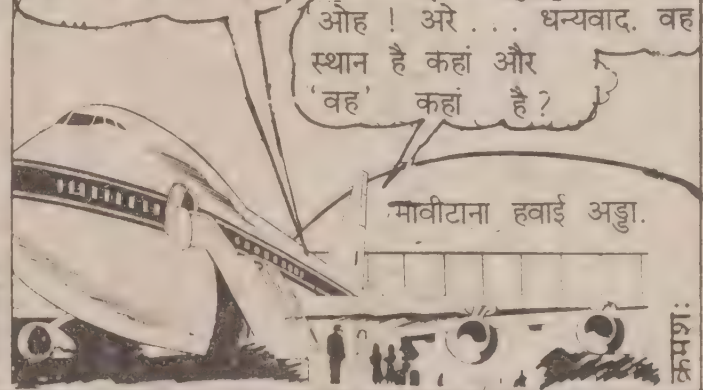 ओह ! अरे ... धन्यवाद. वह
स्थान है कहां और
'वह' कहां है?
मावीटाना हवाई अड्डा.
क्रमशः